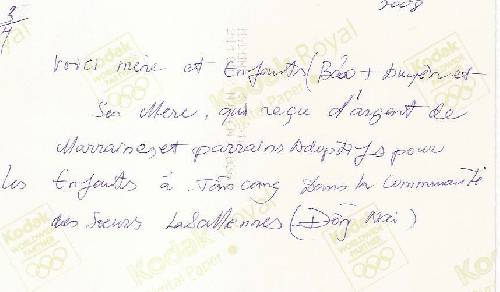 3/4
2008
Voici mère et Enfants (Bảo + Duyên et
Sa Mère, qui reçu d'argent de
Marraines et parrains Adoptifs pour
les Enfants à Tân cang dans la Communauté
des Soeurs LaSalliennes (Đồng Nai)
Kodak
Kodak Royal
Digital Paper